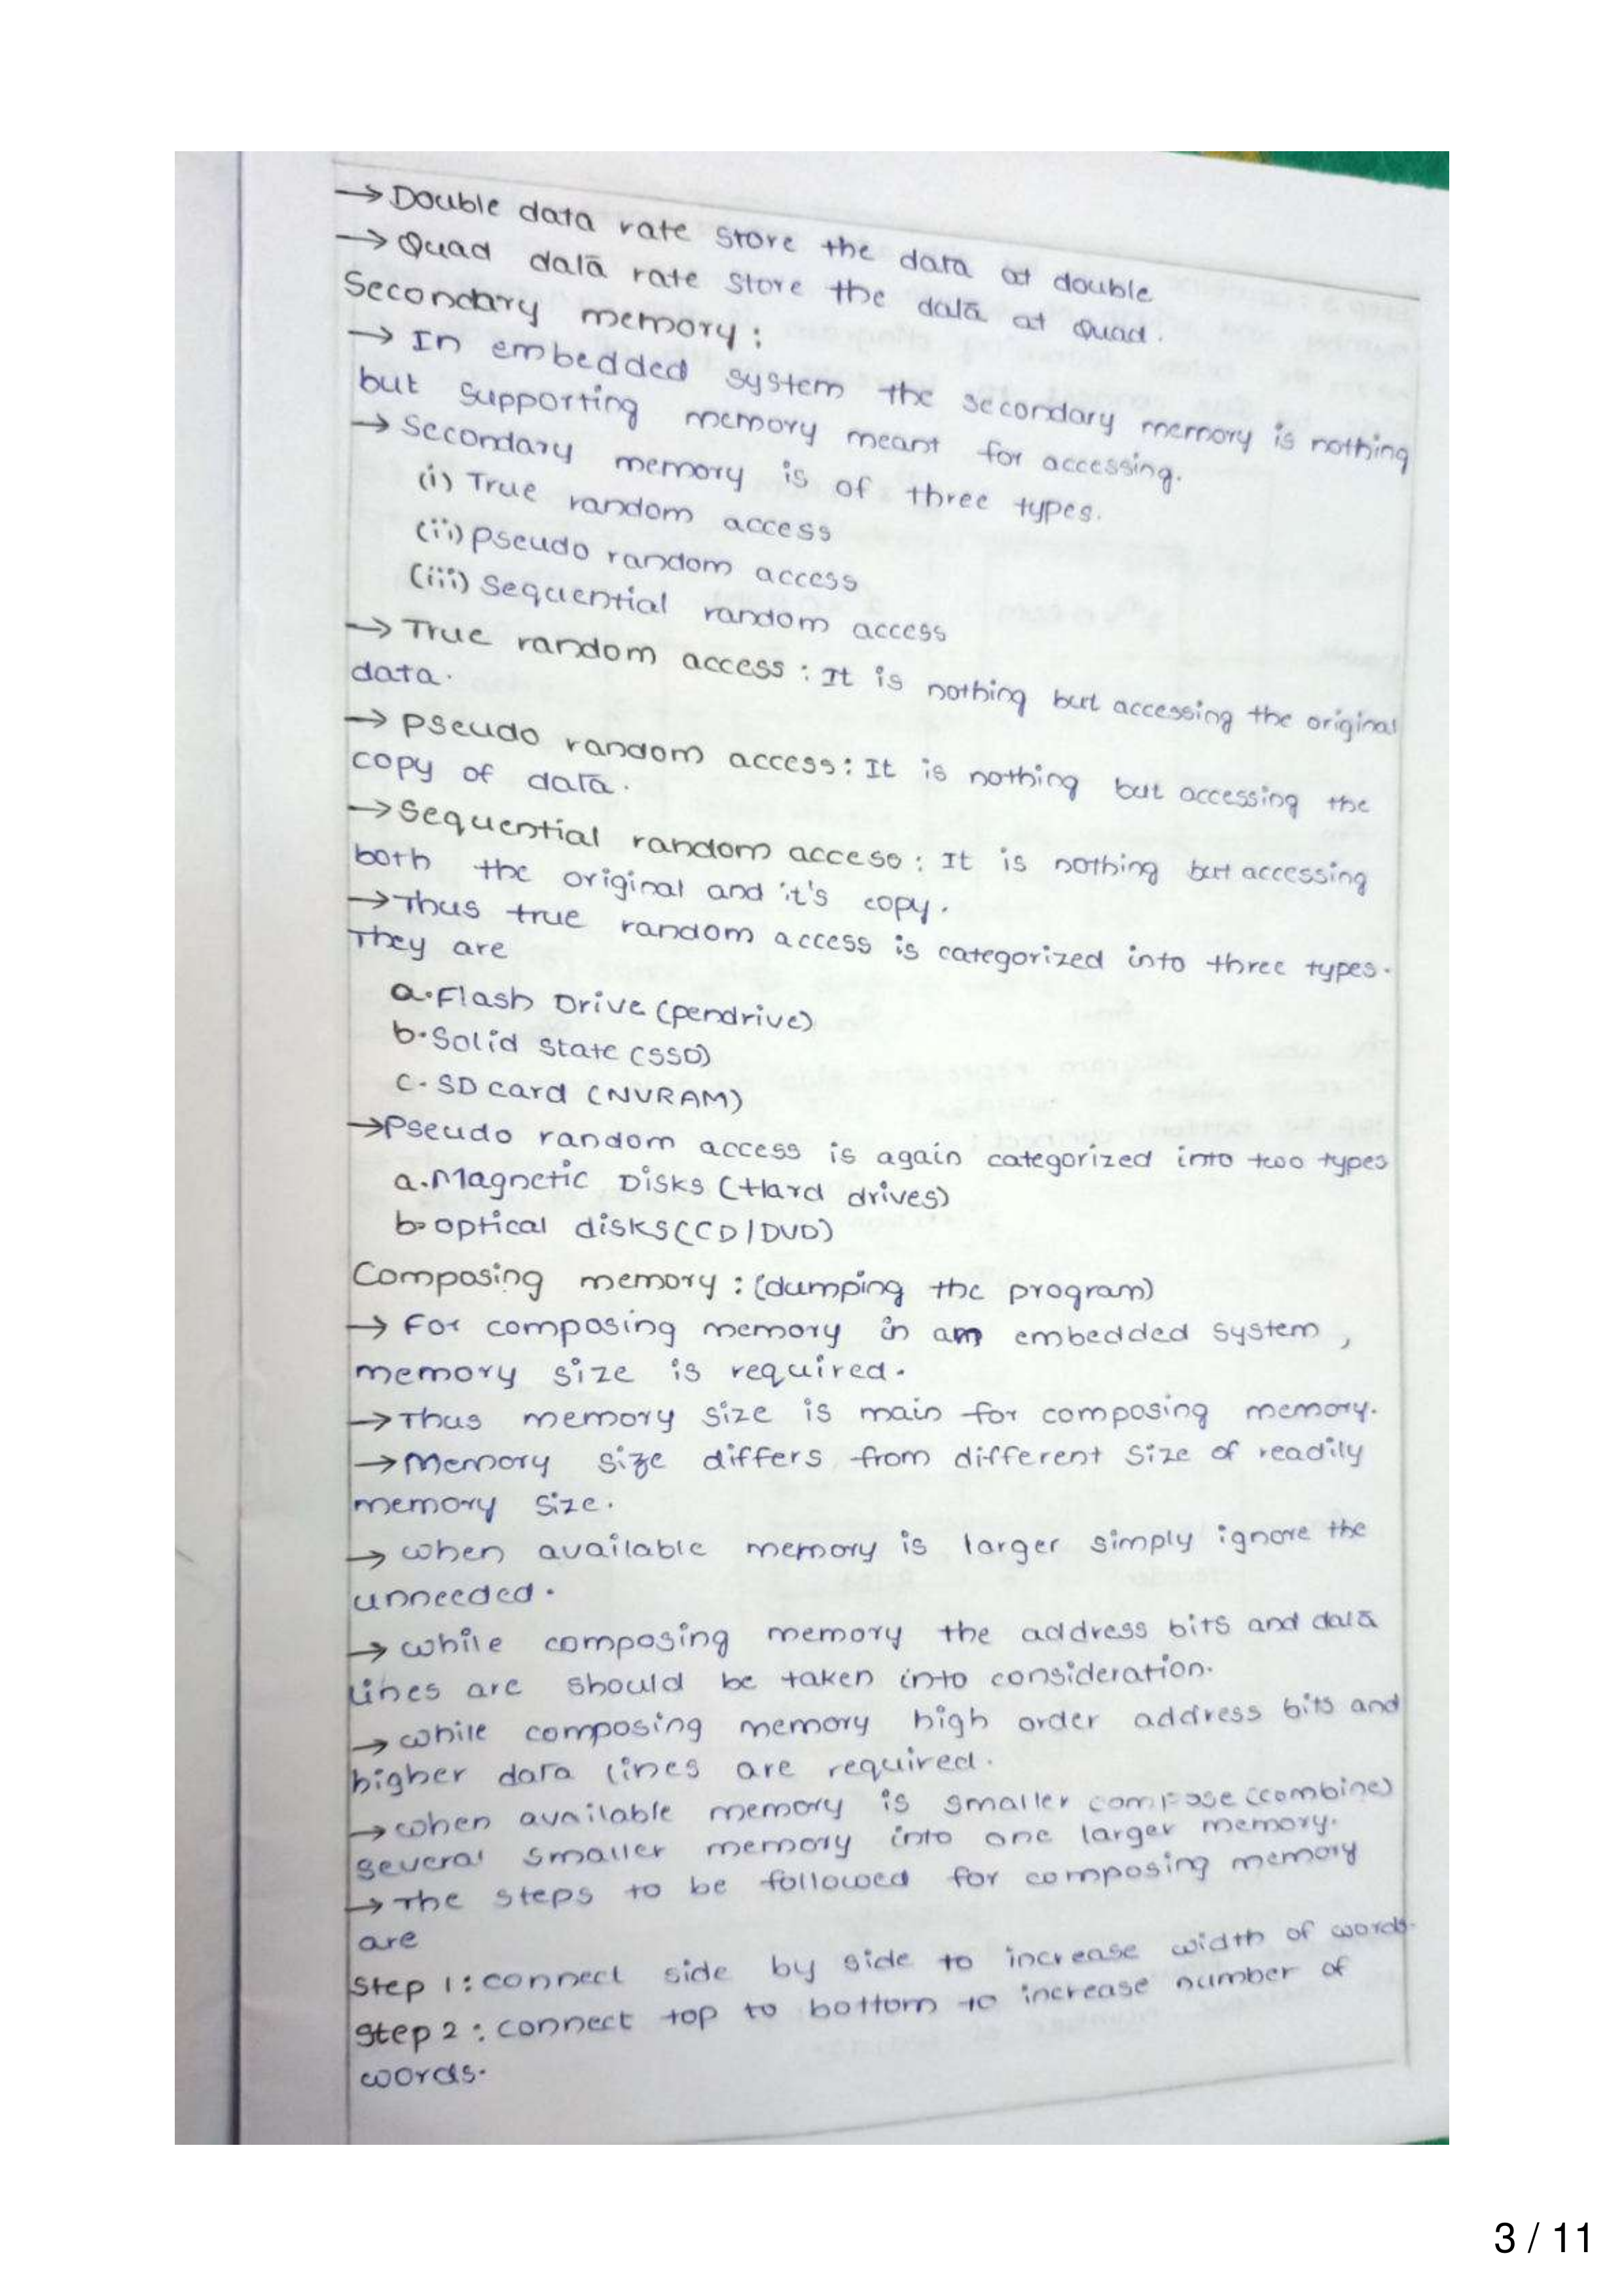 → Double data rate store the data at double
→ Quad data rate store the data at Quad.
Secondary memory :
→ In embedded system the secondary memory is nothing
but supporting memory meant for accessing.
→ Secondary memory is of three types.
(i) True random access
(ii) pseudo random access
(iii) Sequential random access
→ True random access : It is nothing but accessing the original
data.
→ pseudo random access : It is nothing but accessing the
copy of data.
→ Sequential random access : It is nothing but accessing
both the original and it's copy.
→ Thus true random access is categorized into three types.
They are
a. Flash Drive (pendrive)
b. Solid state (SSD)
c. SD card (NVRAM)
→ Pseudo random access is again categorized into two types
a. Magnetic Disks (Hard drives)
b. optical disks (CD/DVD)
Composing memory : (dumping the program)
→ For composing memory in an embedded system,
memory size is required.
→ Thus memory size is main for composing memory.
→ Memory size differs from different size of readily
memory size.
→ when available memory is larger simply ignore the
unneeded.
→ while composing memory the address bits and data
lines are should be taken into consideration.
→ while composing memory high order address bits and
higher data lines are required.
→ when available memory is smaller compose (combine)
several smaller memory into one larger memory.
→ The steps to be followed for composing memory
are
Step 1 : connect side by side to increase width of words.
Step 2 : connect top to bottom to increase number of
words.
3 / 11